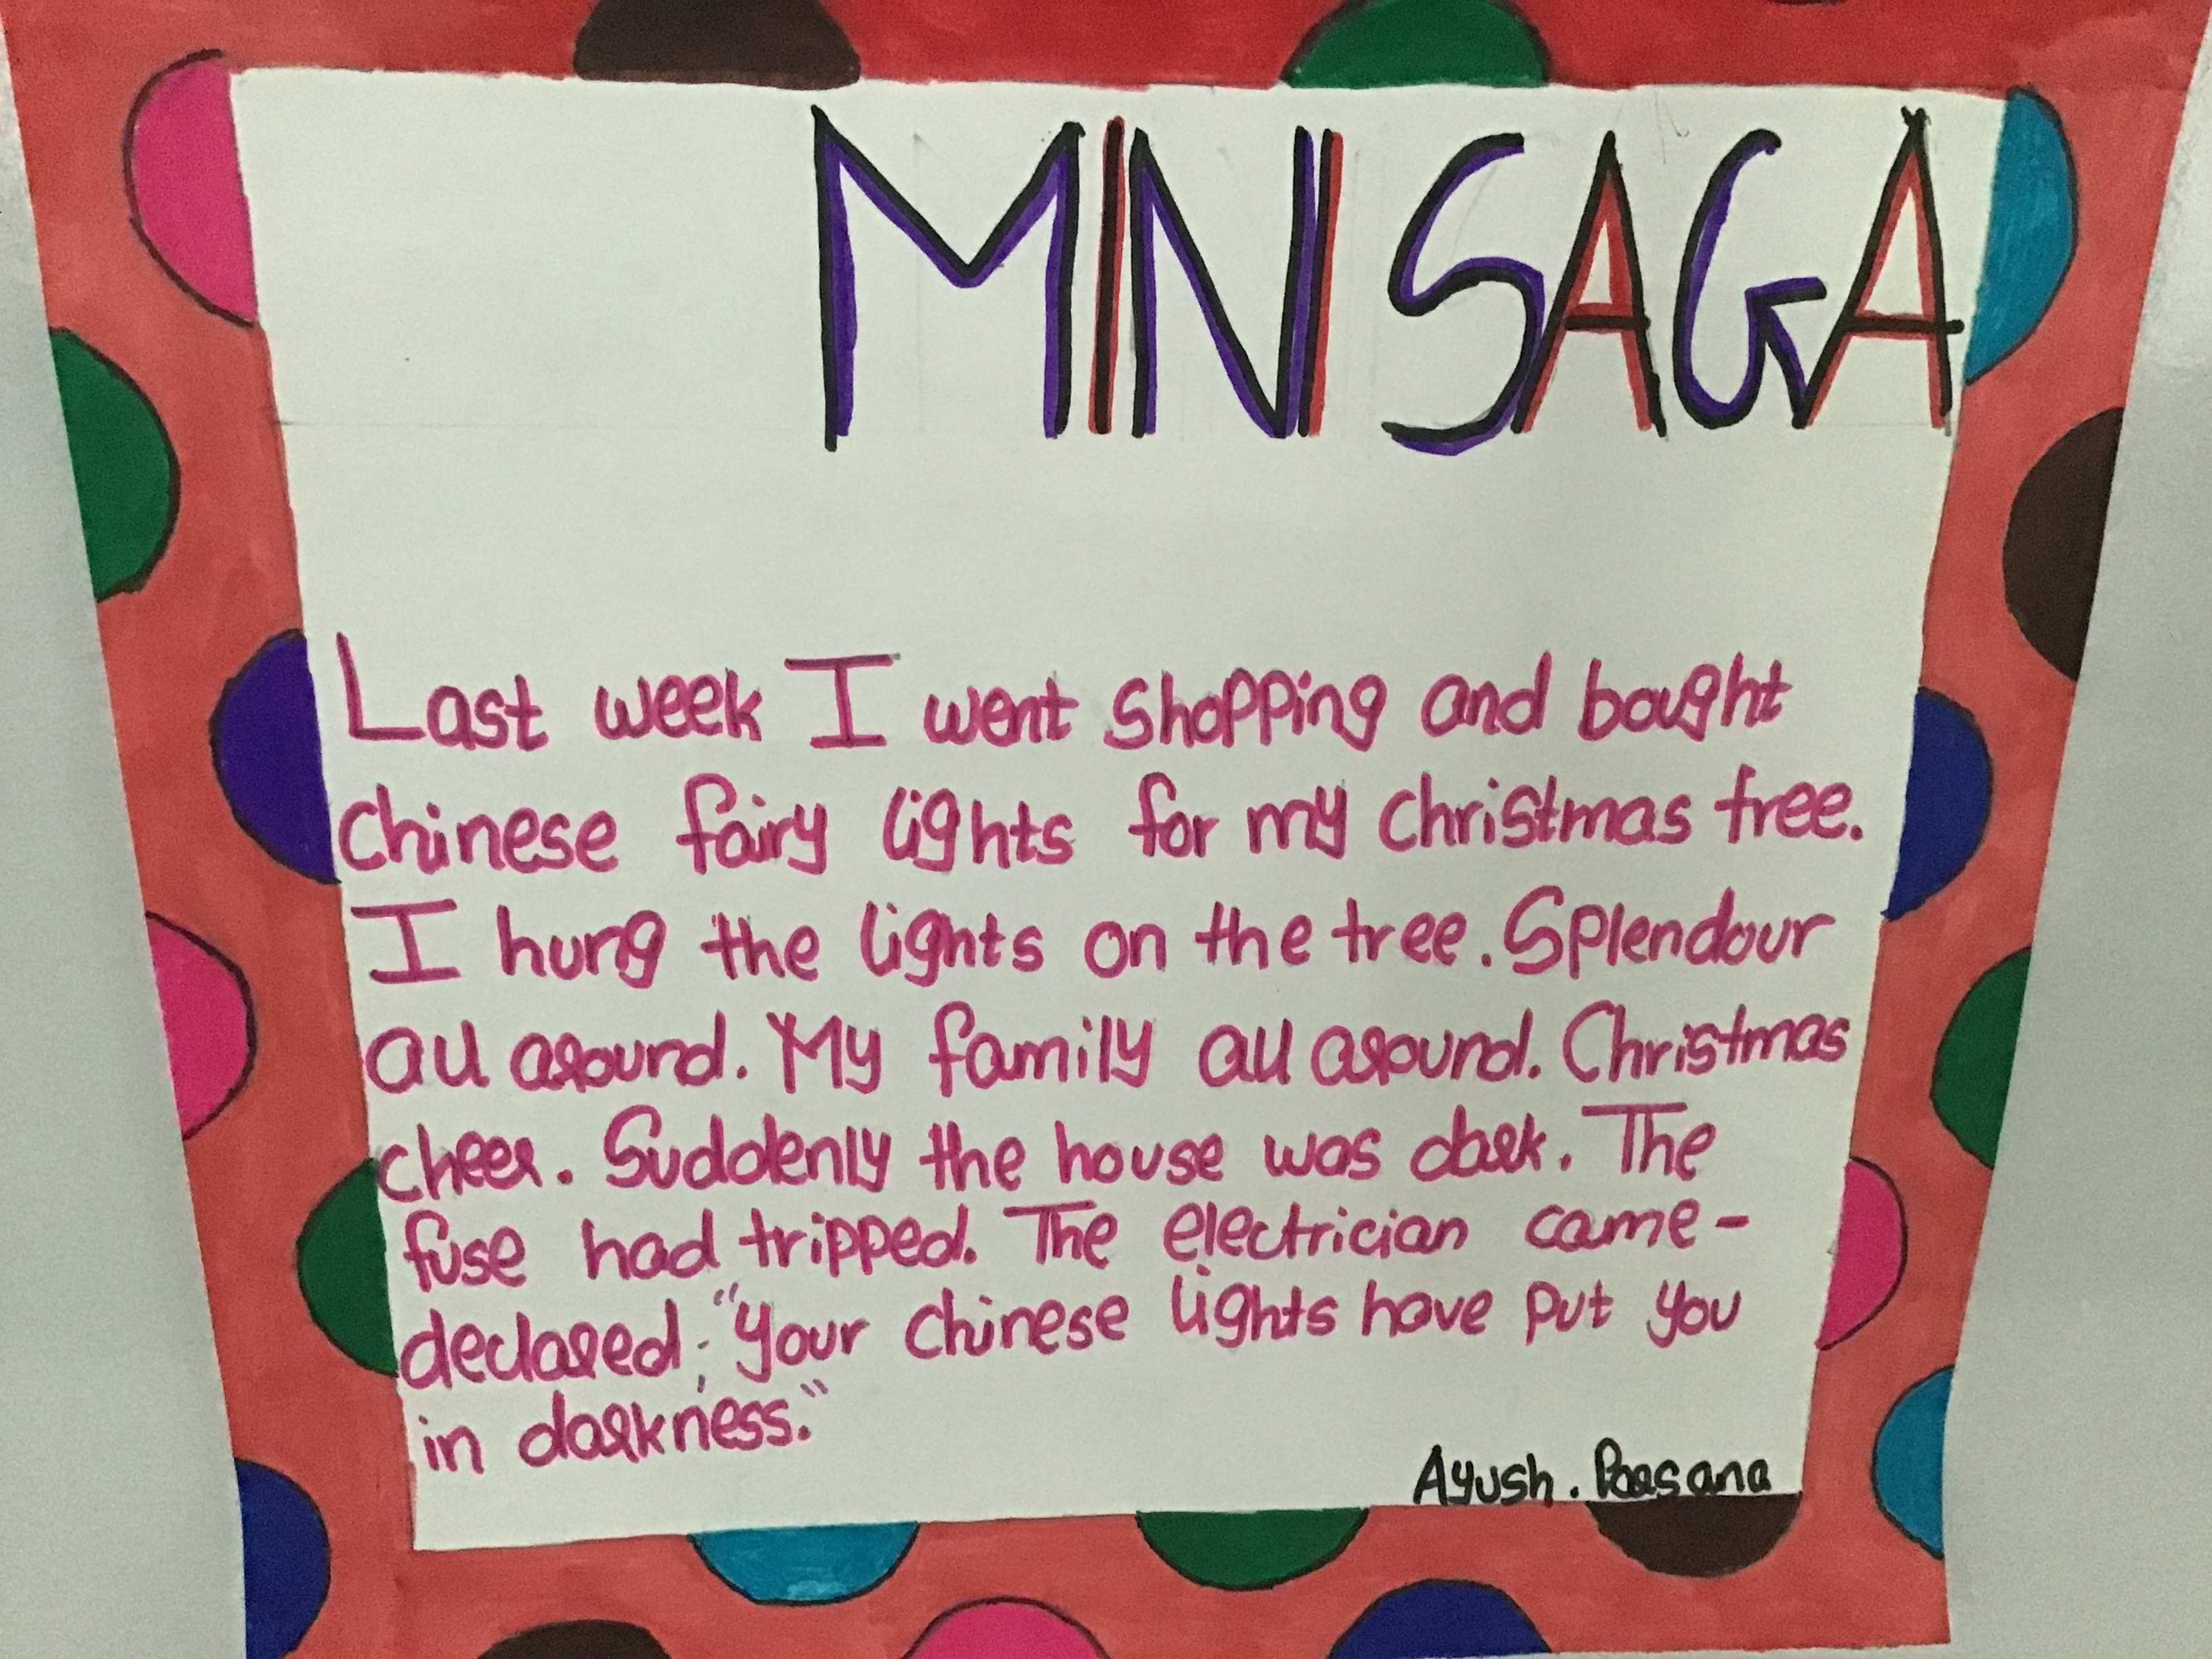 MINI SAGA
Last week I went shopping and bought
Chinese fairy lights for my Christmas tree.
I hung the lights on the tree. Splendour
all around. My family all around. Christmas
cheer. Suddenly the house was dark. The
fuse had tripped. The electrician came-
declared, "Your Chinese lights have put you
in darkness."
Ayush.